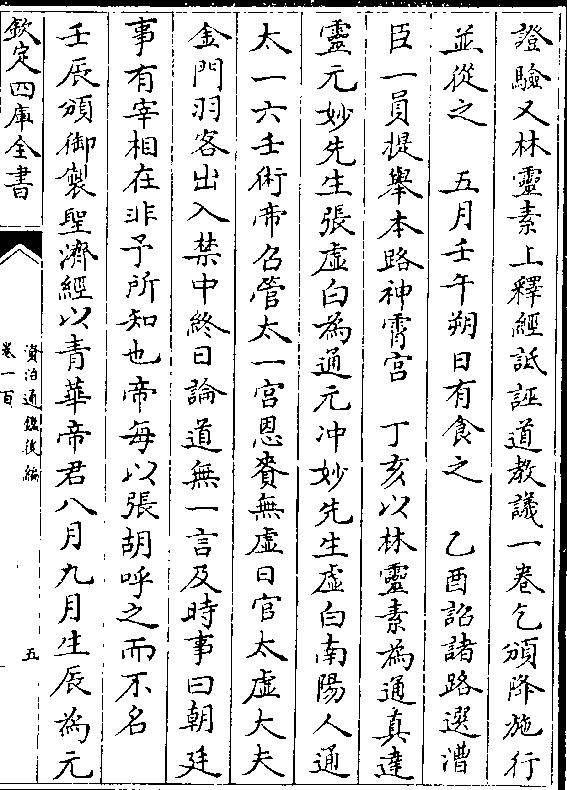 證驗又林靈素上釋經詆誣道教議一卷乞頒降施行
並從之　五月壬午朔日有食之　乙酉詔諸路選漕
臣一員提舉本路神霄宮　丁亥以林靈素為通真達
靈元妙先生張虛白為通元冲妙先生虛白南陽人通
太一六壬術帝召管太一宮恩賚無虛日官太虛大夫
金門羽客出入禁中終日論道無一言及時事曰朝廷
事有宰相在非予所知也帝每以張胡呼之而不名
壬辰頒御製聖濟經以青華帝君八月九月生辰為元
欽定四庫全書
資治通鑑後編
卷一百
五